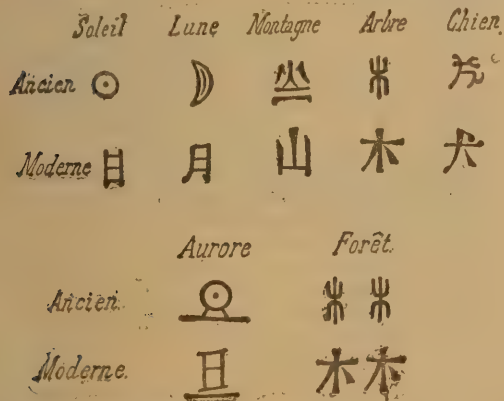 Soleil Lune Montagne Arbre Chien.
Ancien
Moderne 日 月 山 木 犬
Aurore Forêt.
Ancien.
Moderne. 旦 木木